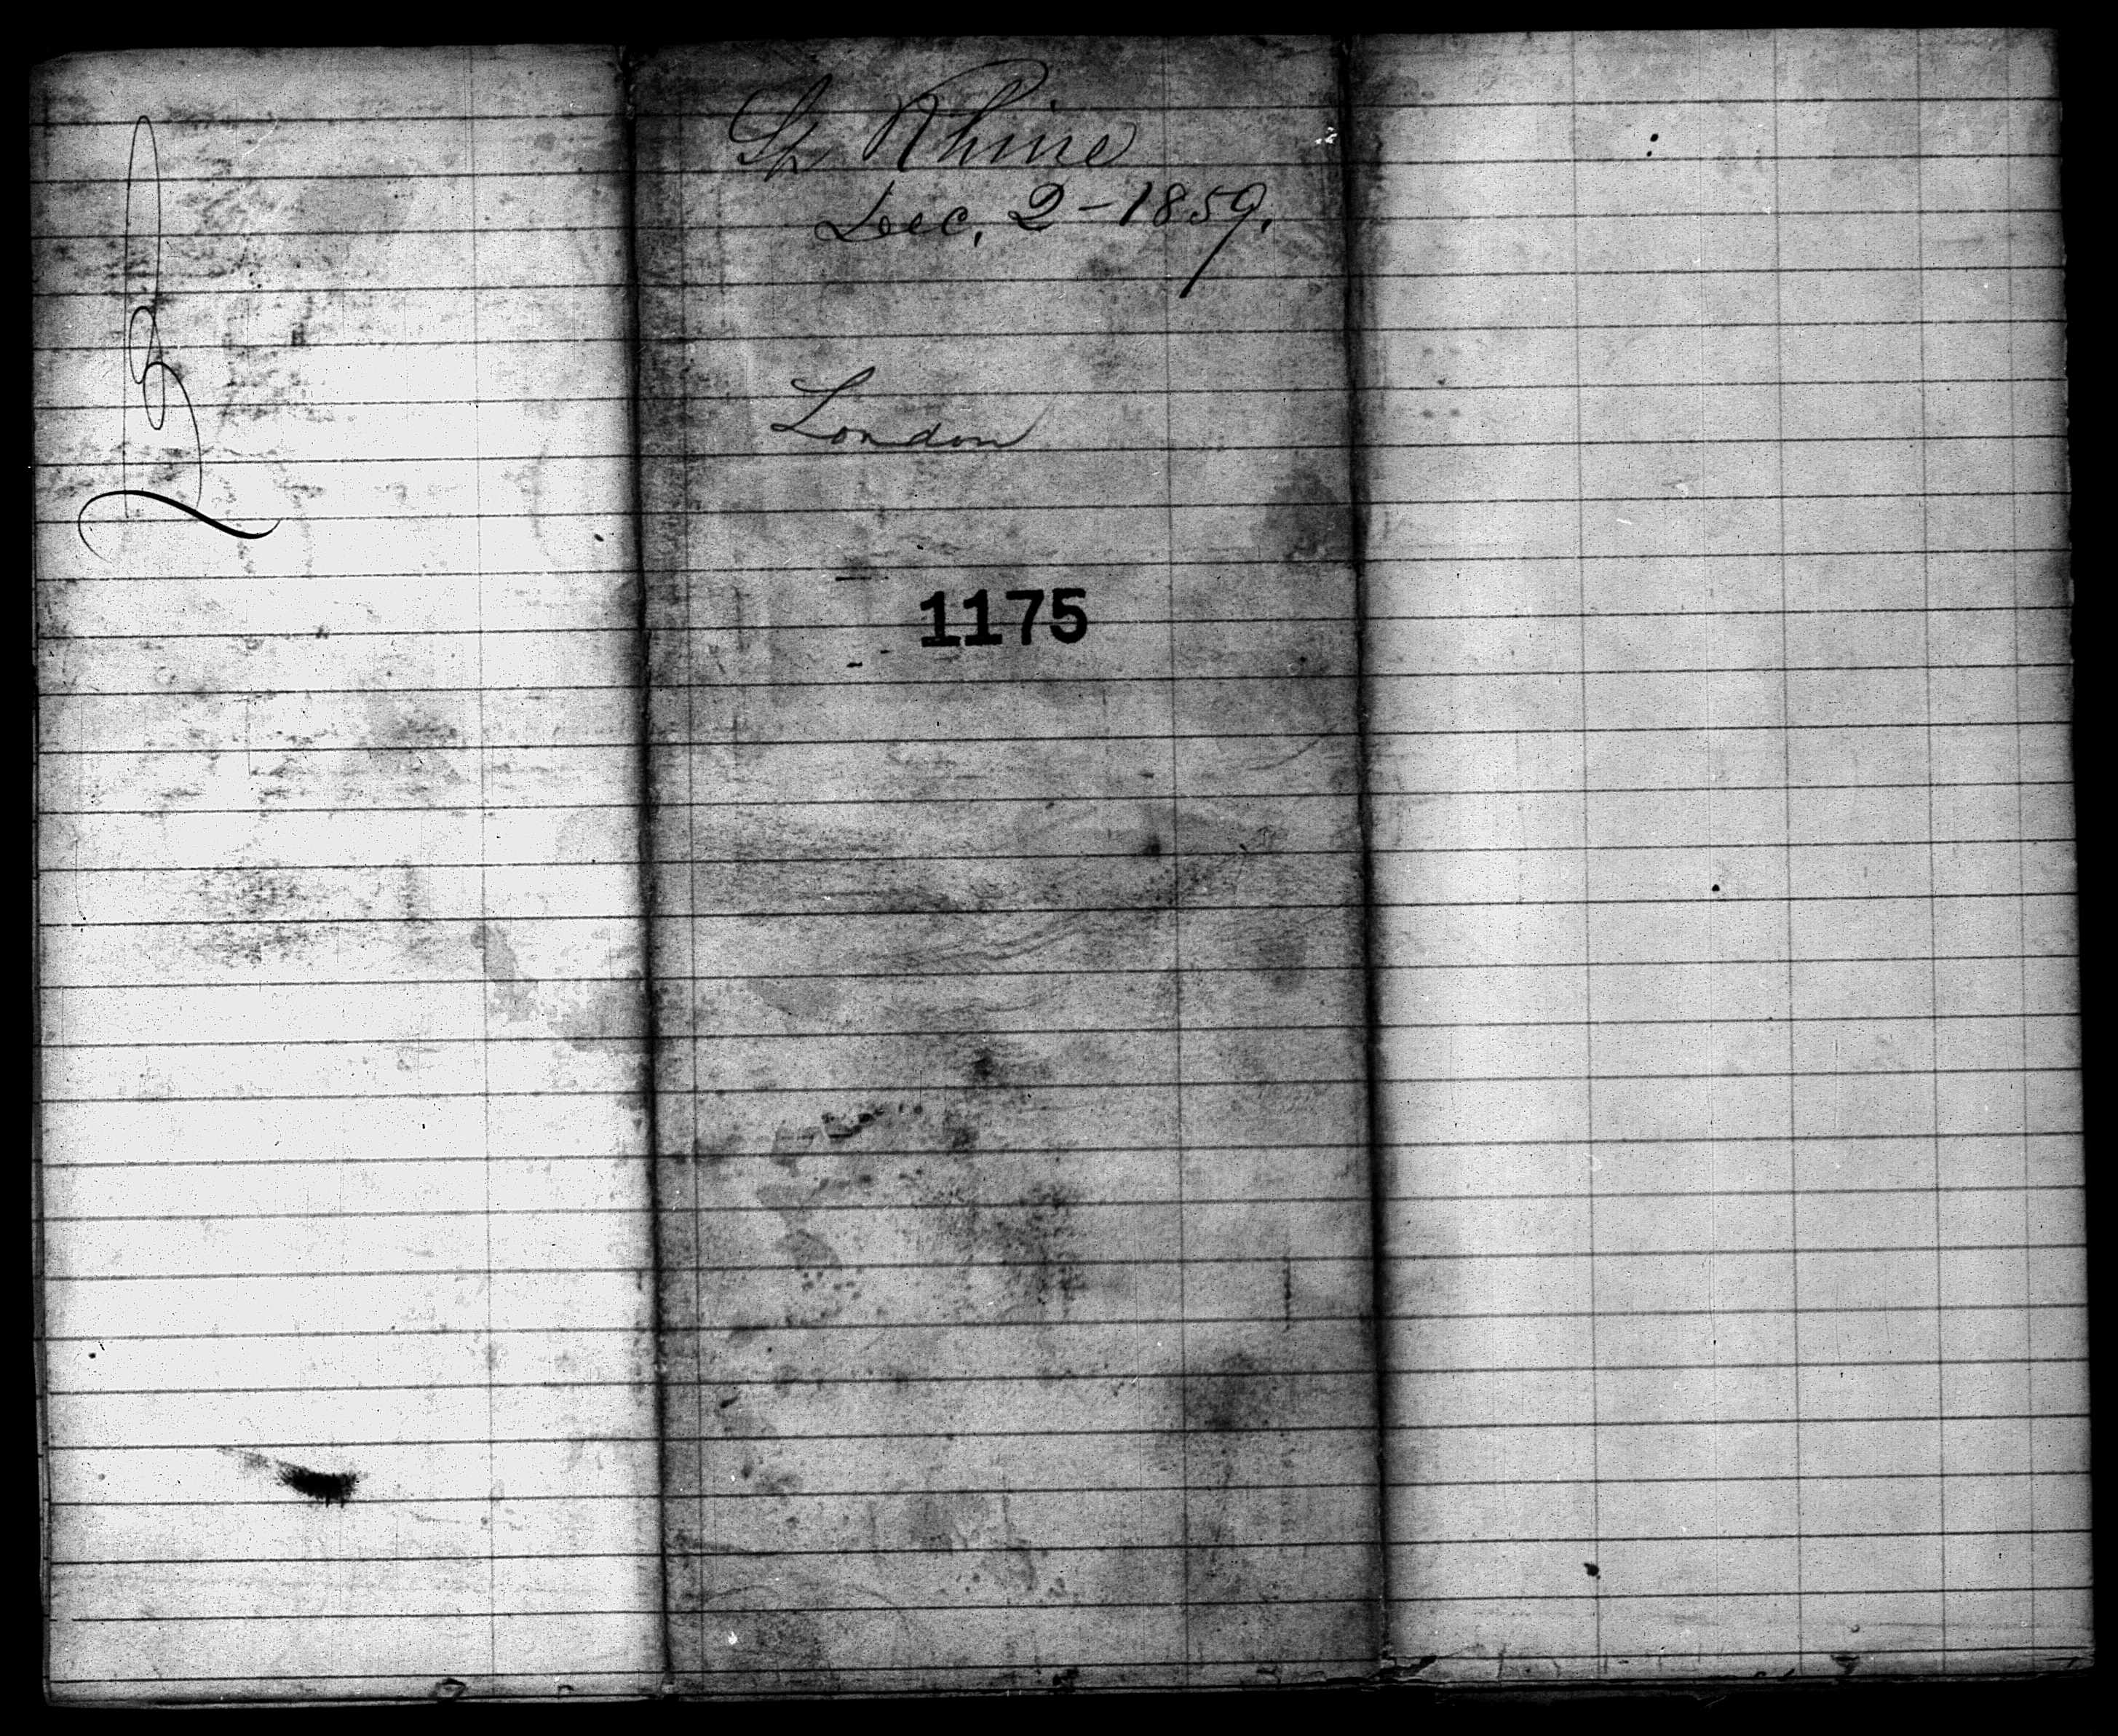 Sh Rhine
Dec. 2-1859.
London
1175